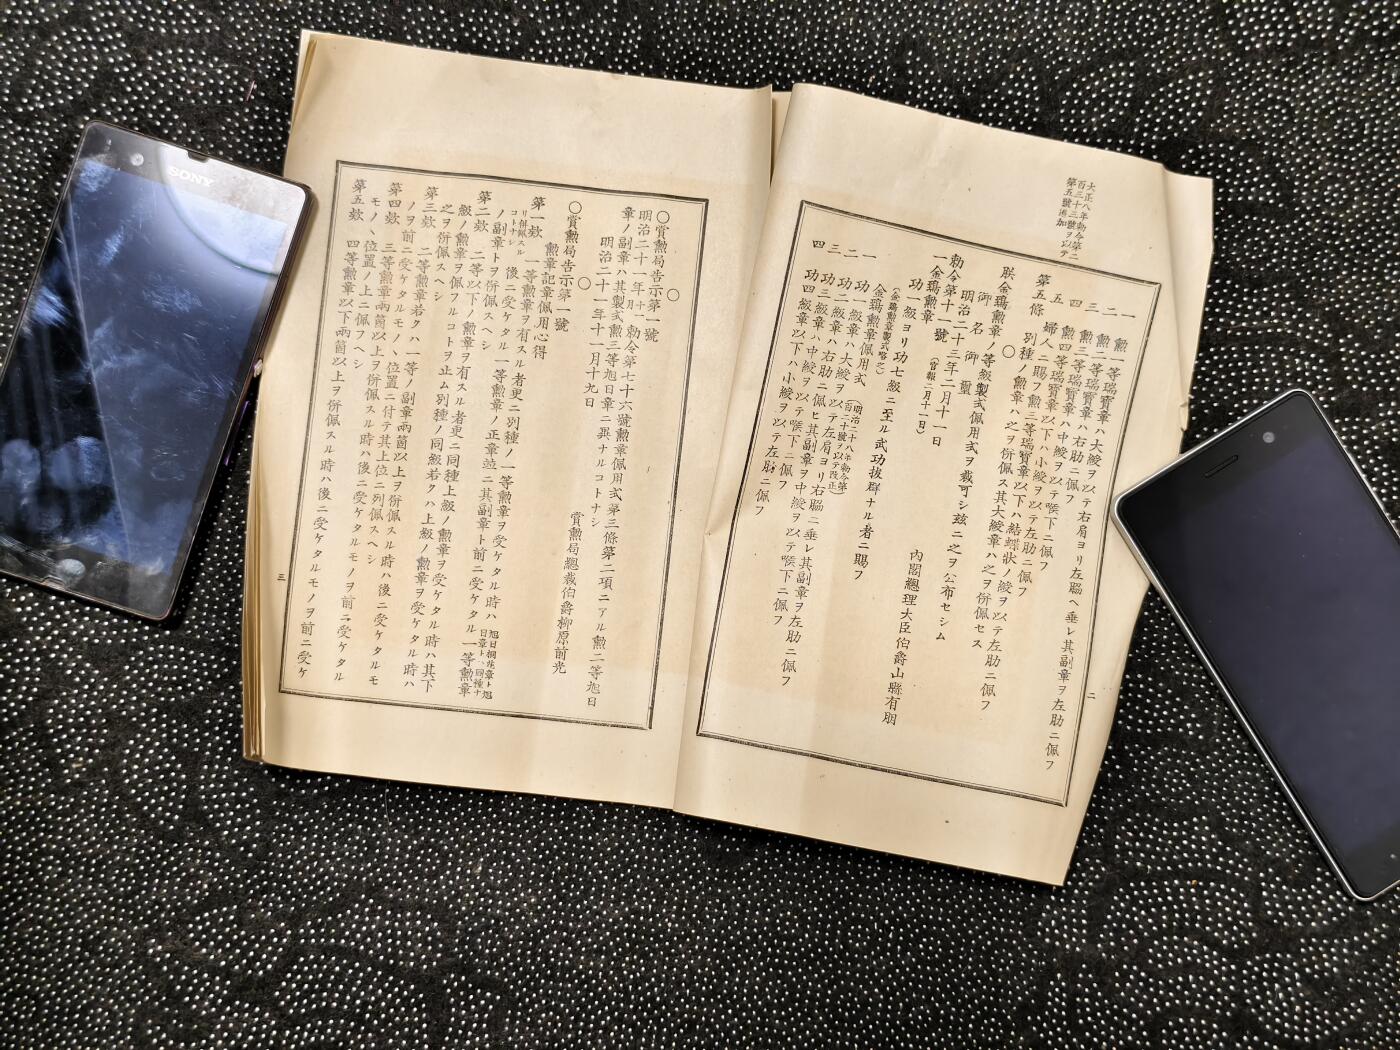 大正八年勅令第二
百三十三號ヲ以テ
第五號添加
一 勲一等瑞寶章ハ大綬ヲ以テ右肩ヨリ左脇ヘ垂レ其副章ヲ左肋ニ佩フ
二 勲二等瑞寶章ハ右肋ニ佩フ
三 勲三等瑞寶章ハ中綬ヲ以テ喉下ニ佩フ
四 勲四等瑞寶章以下ハ小綬ヲ以テ左肋ニ佩フ
五 婦人ニ賜フ勲三等瑞寶章以下ハ結蝶狀ノ綬ヲ以テ左肋ニ佩フ
第五條 別種ノ勲章ハ之ヲ併佩ス其大綬章ハ之ヲ併佩セス
○
朕金鵄勲章ノ等級製式佩用式ヲ裁可シ玆ニ之ヲ公布セシム
御名 御璽
明治二十三年二月十一日
內閣總理大臣伯爵山縣有朋
勅令第十一號 (官報二月十一日)
一 金鵄勲章
功一級ヨリ功七級ニ至ル武功拔群ナル者ニ賜フ
(金鵄勲章製式略之)
金鵄勲章佩用式 (明治二十八年勅令第百二十號ヲ以テ改正)
一 功一級章ハ大綬ヲ以テ左肩ヨリ右脇ニ垂レ其副章ヲ左肋ニ佩フ
二 功二級章ハ右肋ニ佩ヒ其副章ヲ中綬ヲ以テ喉下ニ佩フ
三 功三級章ハ中綬ヲ以テ喉下ニ佩フ
四 功四級章以下ハ小綬ヲ以テ左肋ニ佩フ
二
○
○賞勲局告示第一號
明治二十一年十一月勅令第七十六號勲章佩用式第三條第二項ニアル勲二等旭日
章ノ副章ハ其製式勲三等旭日章ニ異ナルコトナシ
明治二十一年十一月十九日
賞勲局總裁伯爵柳原前光
○
○賞勲局告示第一號
勲章記章佩用心得
第一欵 一等勲章ヲ有スル者更ニ別種ノ一等勲章ヲ受ケタル時ハ 旭日桐花章ト旭日章トハ同種ナリ併佩スルコトナシ 後ニ受ケタル一等勲章ノ正章竝ニ其副章ト前ニ受ケタル一等勲章
ノ副章トヲ併佩スヘシ
第二欵 二等以下ノ勲章ヲ有スル者更ニ同種上級ノ勲章ヲ受ケタル時ハ其下
級ノ勲章ヲ佩フルコトヲ止ム別種ノ同級若クハ上級ノ勲章ヲ受ケタル時ハ
之ヲ併佩スヘシ
第三欵 二等勲章若クハ一等ノ副章兩箇以上ヲ併佩スル時ハ後ニ受ケタルモ
ノヲ前ニ受ケタルモノヽ位置ニ付テ其上位ニ列佩スヘシ
第四欵 三等勲章兩箇以上ヲ併佩スル時ハ後ニ受ケタルモノヲ前ニ受ケタル
モノヽ位置ノ上ニ佩フヘシ
第五欵 四等勲章以下兩箇以上ヲ併佩スル時ハ後ニ受ケタルモノヲ前ニ受ケ
三
SONY